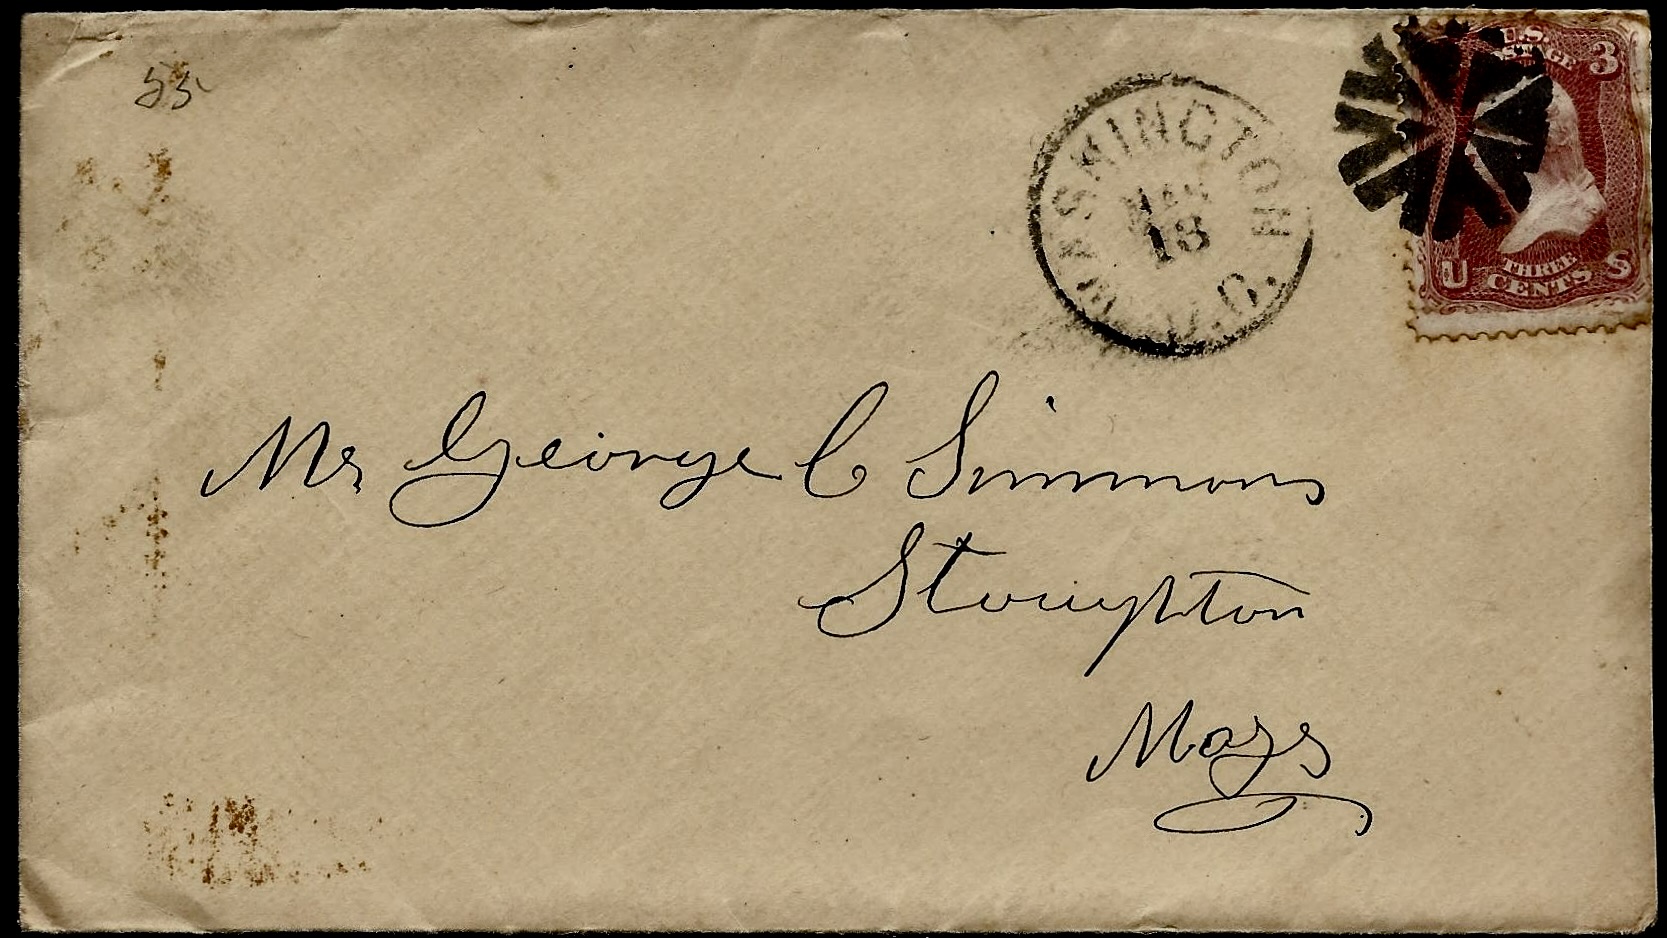 55
WASHINGTON
18
D.C.
U.S.
POSTAGE 3
U THREE S
CENTS
Mr George C Simmons
Stoughton
Mass